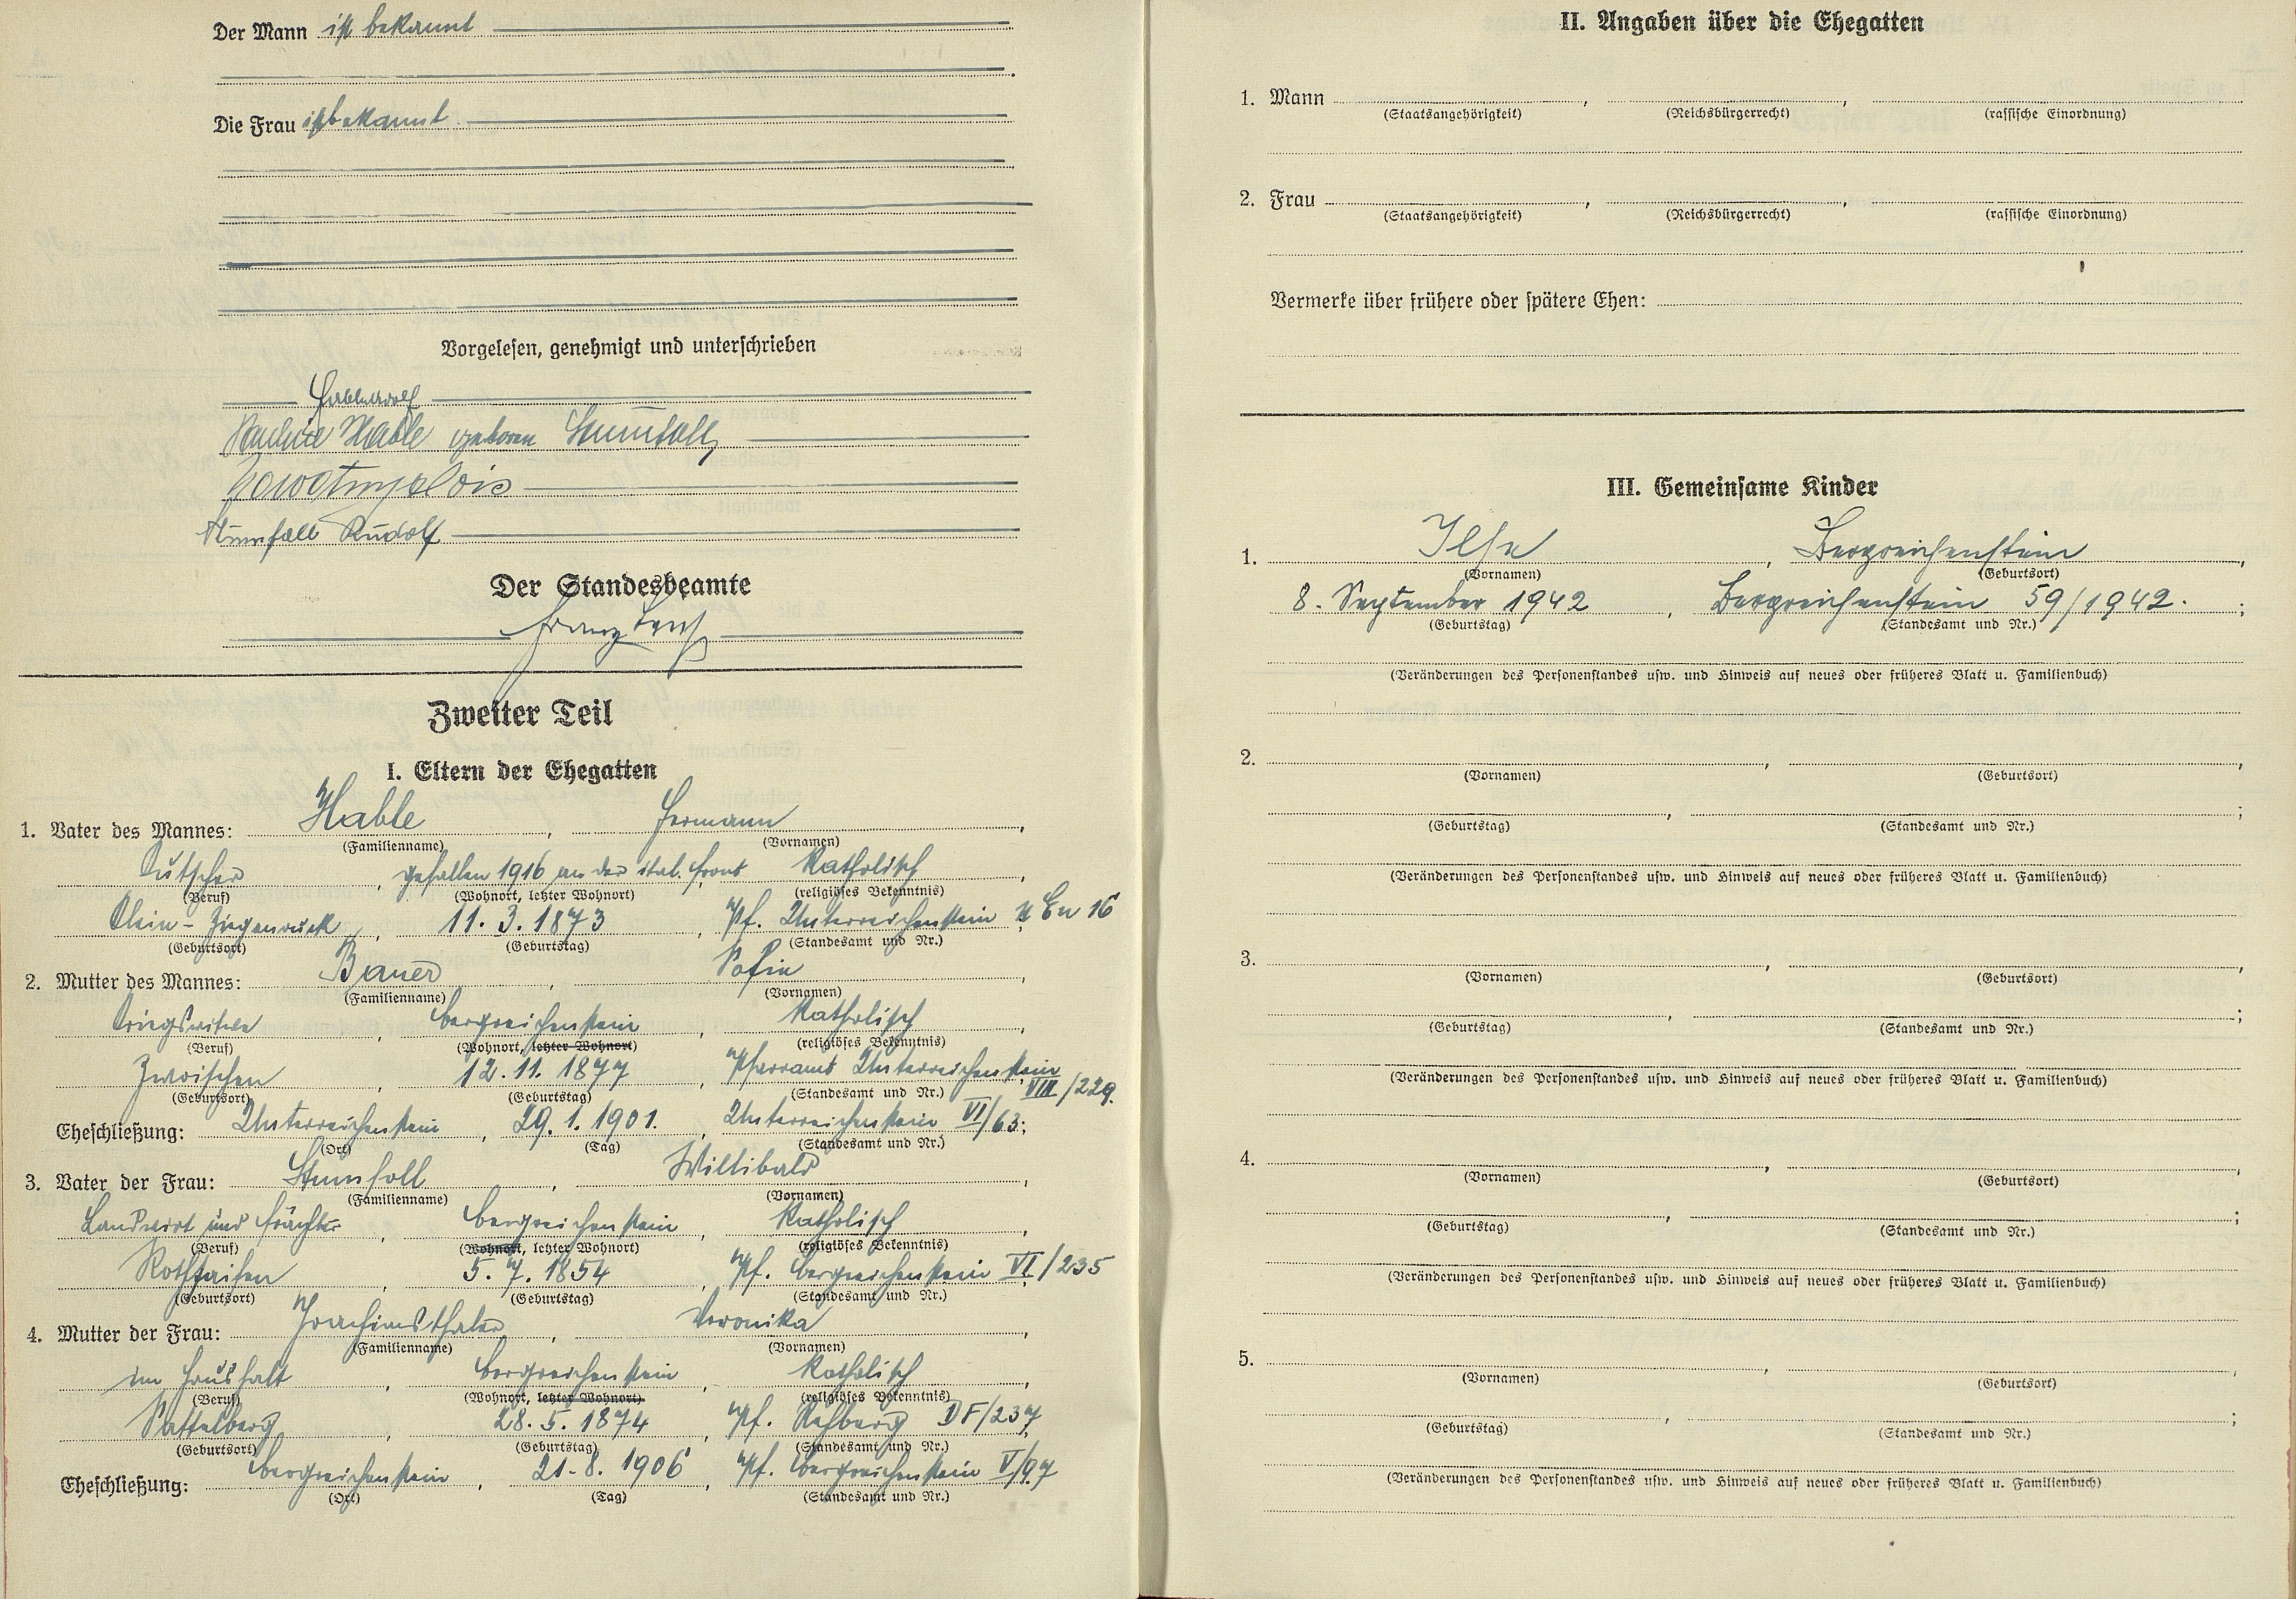 Der Mann ist bekannt
Die Frau ist bekannt
Vorgelesen, genehmigt und unterschrieben
Hable Adolf
Pauline Hable geboren Stumfoll
Stumfoll Rudolf
Der Standesbeamte
Franz
Zweiter Teil
I. Eltern der Ehegatten
1. Vater des Mannes: Hable, Hermann,
(Familienname) (Vornamen)
Kutscher, gefallen 1916 an der ital. Front, Katholisch,
(Beruf) (Wohnort, letzter Wohnort) (religiöses Bekenntnis)
Klein-Ziegenruck, 11. 3. 1873, Pf. Unterreichenstein
(Geburtsort) (Geburtstag) (Standesamt und Nr.)
2. Mutter des Mannes: Bauer, Sofie,
(Familienname) (Vornamen)
Kriegswitwe, Bergreichenstein, Katholisch,
(Beruf) (Wohnort, letzter Wohnort) (religiöses Bekenntnis)
Zwoischen, 12. 11. 1877, Pfarramt Unterreichenstein VIII/229.
(Geburtsort) (Geburtstag) (Standesamt und Nr.)
Eheschließung: Unterreichenstein, 29. 1. 1901., Unterreichenstein VI/63;
(Ort) (Tag) (Standesamt und Nr.)
3. Vater der Frau: Stumfoll, Willibald,
(Familienname) (Vornamen)
Landwirt und Frächter, Bergreichenstein, Katholisch,
(Beruf) (Wohnort, letzter Wohnort) (religiöses Bekenntnis)
Rothsaifen, 5. 7. 1854, Pf. Bergreichenstein VI/235
(Geburtsort) (Geburtstag) (Standesamt und Nr.)
4. Mutter der Frau: Joachimsthaler, Veronika,
(Familienname) (Vornamen)
im Haushalt, Bergreichenstein, Katholisch,
(Beruf) (Wohnort, letzter Wohnort) (religiöses Bekenntnis)
Sattelberg, 28. 5. 1874, Pf. Rehberg DF/237
(Geburtsort) (Geburtstag) (Standesamt und Nr.)
Eheschließung: Bergreichenstein, 21. 8. 1906, Pf. Bergreichenstein V/97
(Ort) (Tag) (Standesamt und Nr.)
II. Angaben über die Ehegatten
1. Mann , ,
(Staatsangehörigkeit) (Reichsbürgerrecht) (rassische Einordnung)
2. Frau , ,
(Staatsangehörigkeit) (Reichsbürgerrecht) (rassische Einordnung)
Vermerke über frühere oder spätere Ehen:
III. Gemeinsame Kinder
1. Ilse, Bergreichenstein,
(Vornamen) (Geburtsort)
8. September 1942, Bergreichenstein 59/1942.;
(Geburtstag) (Standesamt und Nr.)
(Veränderungen des Personenstandes usw. und Hinweis auf neues oder früheres Blatt u. Familienbuch)
2. , ,
(Vornamen) (Geburtsort)
, ;
(Geburtstag) (Standesamt und Nr.)
(Veränderungen des Personenstandes usw. und Hinweis auf neues oder früheres Blatt u. Familienbuch)
3. , ,
(Vornamen) (Geburtsort)
, ;
(Geburtstag) (Standesamt und Nr.)
(Veränderungen des Personenstandes usw. und Hinweis auf neues oder früheres Blatt u. Familienbuch)
4. , ,
(Vornamen) (Geburtsort)
, ;
(Geburtstag) (Standesamt und Nr.)
(Veränderungen des Personenstandes usw. und Hinweis auf neues oder früheres Blatt u. Familienbuch)
5. , ,
(Vornamen) (Geburtsort)
, ;
(Geburtstag) (Standesamt und Nr.)
(Veränderungen des Personenstandes usw. und Hinweis auf neues oder früheres Blatt u. Familienbuch)